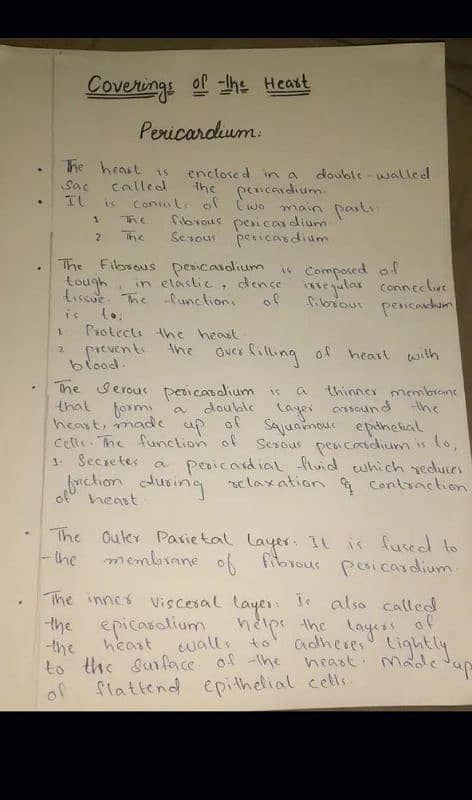 Coverings of the Heart
Pericardium:
• The heart is enclosed in a double-walled
sac called the pericardium.
• It is consists of two main parts
1 The fibrous pericardium
2 The Serous pericardium
• The Fibrous pericardium is composed of
tough, in elastic, dence irregular connective
tissue. The functions of fibrous pericardium
is to;
1 Protects the heart
2 prevents the over filling of heart with
blood.
• The Serous pericardium is a thinner membrane
that forms a double layer around the
heart, made up of Squamous epithelial
cells. The function of Serous pericardium is to,
1. Secretes a pericardial fluid which reduces
friction during relaxation & contraction
of heart
• The Outer Parietal Layer: It is fused to
the membrane of fibrous pericardium.
• The inner visceral layer: Is also called
the epicardium helps the layers of
the heart walls to adheres tightly
to the Surface of the heart. Made up
of flattend epithelial cells.